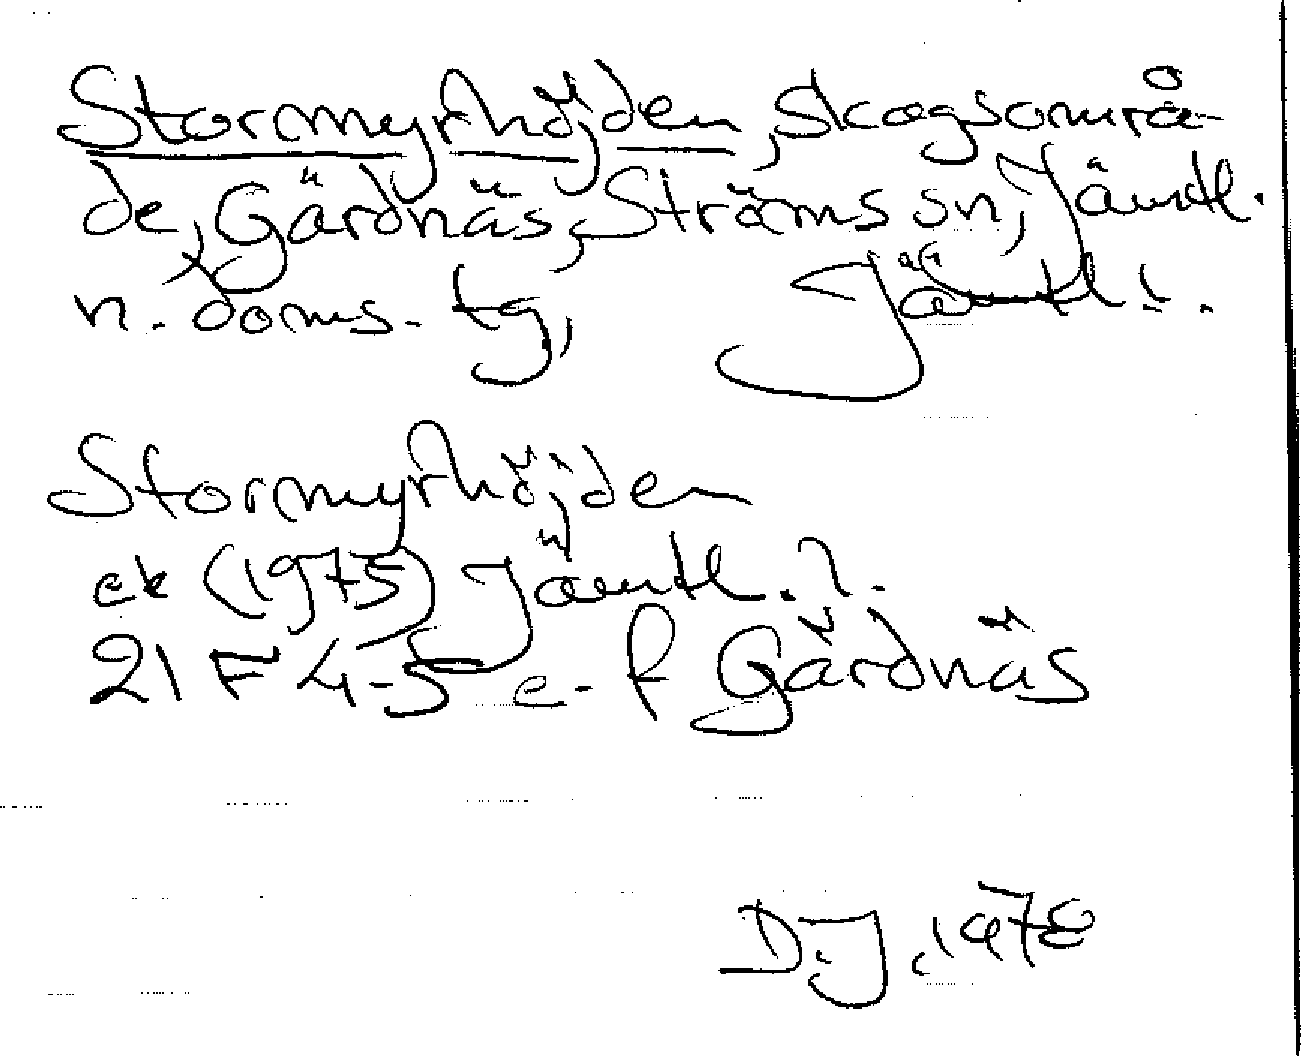 Stormyrhöjden, skogsområ-
de, Gärdnäs, Ströms sn, Jämtl.
n. doms. tg, Jämtl. l.
Stormyrhöjden
ek (1975) Jämtl. l.
21 F 4-5 e-f Gärdnäs
D.J. 1978